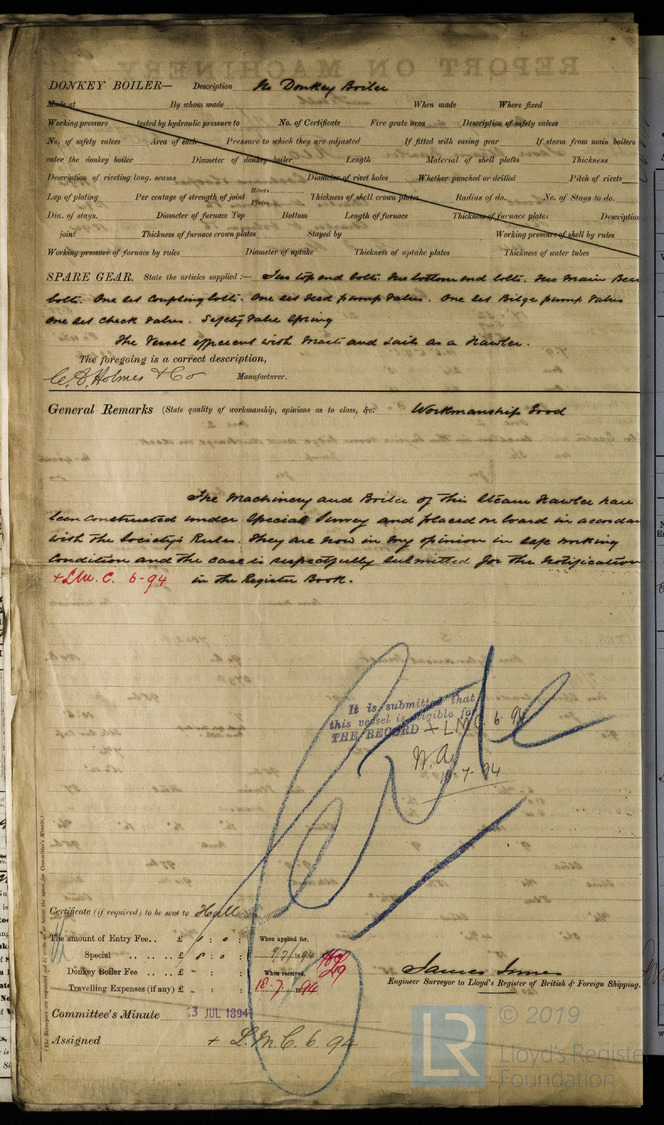 DONKEY BOILER— Description No Donkey Boiler
Made at By whom made When made Where fixed
Working pressure tested by hydraulic pressure to No. of Certificate Fire grate area Description of safety valves
No. of safety valves Area of each Pressure to which they are adjusted If fitted with easing gear If steam from main boilers
enter the donkey boiler Diameter of donkey boiler Length Material of shell plates Thickness
Description of riveting long. seams Diameter of rivet holes Whether punched or drilled Pitch of rivets
Lap of plating Per centage of strength of joint Rivets Plates Thickness of shell crown plates Radius of do. No. of Stays to do.
Dia. of stays. Diameter of furnace Top Bottom Length of furnace Thickness of furnace plates Description
joint Thickness of furnace crown plates Stayed by Working pressure of shell by rules
Working pressure of furnace by rules Diameter of uptake Thickness of uptake plates Thickness of water tubes
SPARE GEAR. State the articles supplied:— Two top end bolts. Two bottom end bolts. Two Main Bear
bolts. One set Coupling bolts. One set feed pump Valves. One set Bilge pump Valves
One set Check Valves. Safety Valve Spring
The Vessel efficient with Masts and Sails as a Trawler.
The foregoing is a correct description,
C. D. Holmes & Co Manufacturer.
General Remarks (State quality of workmanship, opinions as to class, &c. Workmanship Good
The Machinery and Boiler of this Steam Trawler have
been constructed under Special Survey and placed on board in accordan
with the Society's Rules. They are now in my opinion in safe working
Condition and the case is respectfully submitted for the Notification
+ LMC. 6-94 in the Register Book.
It is submitted that
this vessel is eligible for
THE RECORD + LMC 6.94
10.7.94
Certificate (if required) to be sent to Hull
The amount of Entry Fee.. £ 1 : 0 : When applied for,
Special .. .. .. £ 8 : 0 : 9/7/1894
Donkey Boiler Fee .. £ - : : When received,
Travelling Expenses (if any) £ - : : 18.7.1894
James Innes
Engineer Surveyor to Lloyd's Register of British & Foreign Shipping.
Committee's Minute 13 JUL 1894
Assigned + L.M.C. 6.94
© 2019
LR
Lloyd's Registe
Foundation